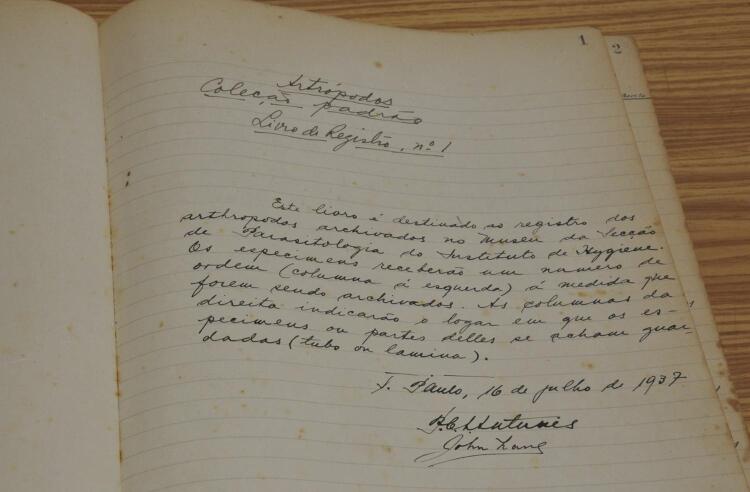 1
2
Artrópodos
Coleção padrão
Livro de Registro, nº 1
Este livro é destinado ao registro dos
arthropodos archivados no museu da Secção
de Parasitologia do Instituto de Hygiene.
Os especimens receberão um numero de
ordem (columna á esquerda) á medida que
forem sendo archivados. As columnas da
direita indicarão o logar em que os es-
pecimens ou partes delles se acham guar-
dadas (tubo ou lamina).
S. Paulo, 16 de julho de 1937
Antunes
John Lane